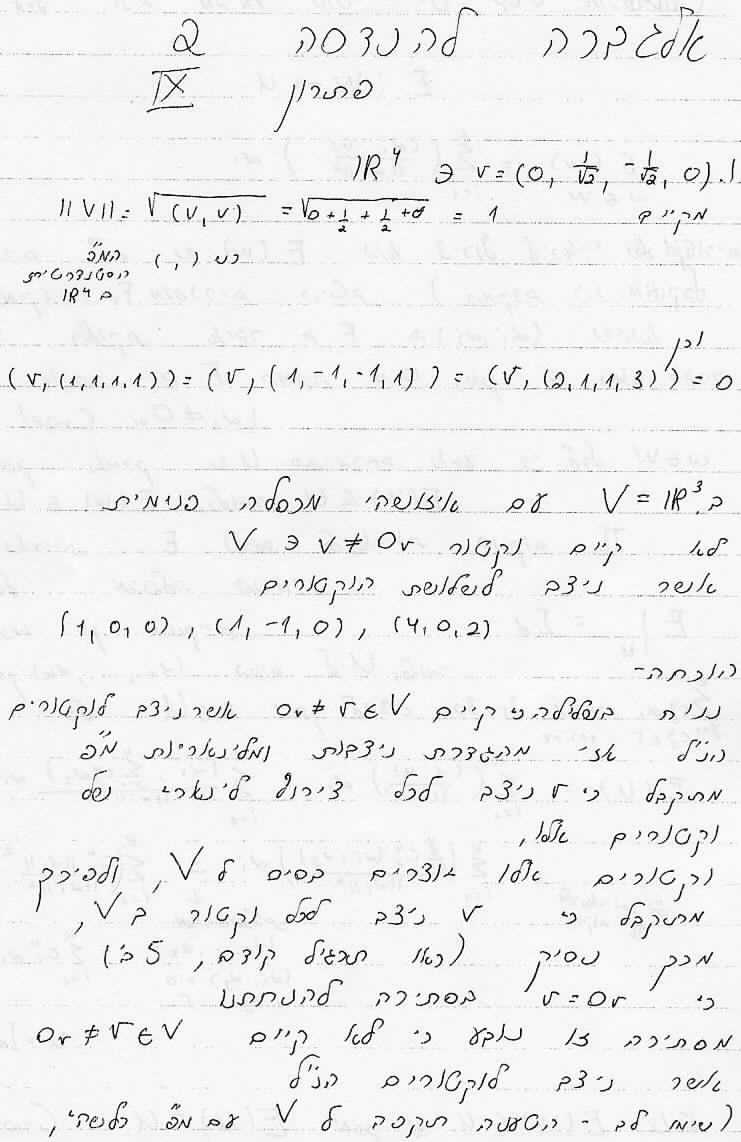 אלגברה להנדסה 2
פתרון IX
1. v = (0, 1/√2, -1/√2, 0) ∈ ℝ⁴
מקיים ||v|| = √(v,v) = √(0+1/2+1/2+0) = 1
כש ( , ) המ"פ
הסטנדרטית
ב ℝ⁴
וכן
(v,(1,1,1,1)) = (v,(1,-1,-1,1)) = (v,(2,1,1,3)) = 0
ב. V = ℝ³ עם איזושהי מכפלה פנימית
לא קיים וקטור V ∋ v ≠ 0v
אשר ניצב לשלושת הוקטורים
(1,0,0), (1,-1,0), (4,0,2)
הוכחה-
נניח בשלילה כי קיים 0v ≠ v ∈ V אשר ניצב לוקטורים
הנ"ל אזי מהגדרת ניצבות ומלינאריות מ"פ
מתקבל כי v ניצב לכל צירוף לינארי של
וקטורים אלו,
וקטורים אלו יוצרים בסיס ל V, ולפיכך
מתקבל כי v ניצב לכל וקטור ב V,
מכך נסיק (ראו תרגיל קודם, 5 ב')
כי v = 0v בסתירה להנחתנו
מסתירה זו נובע כי לא קיים 0v ≠ v ∈ V
אשר ניצב לוקטורים הנ"ל
(שימו לב - הטענה תקפה ל V עם מ"פ כלשהי,